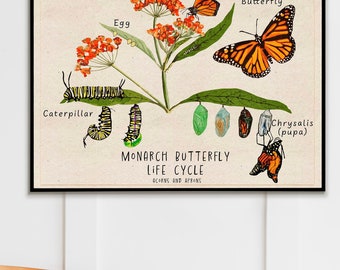 Butterfly
Egg
Caterpillar
Chrysalis
(pupa)
MONARCH BUTTERFLY
LIFE CYCLE
ACORNS AND APRONS